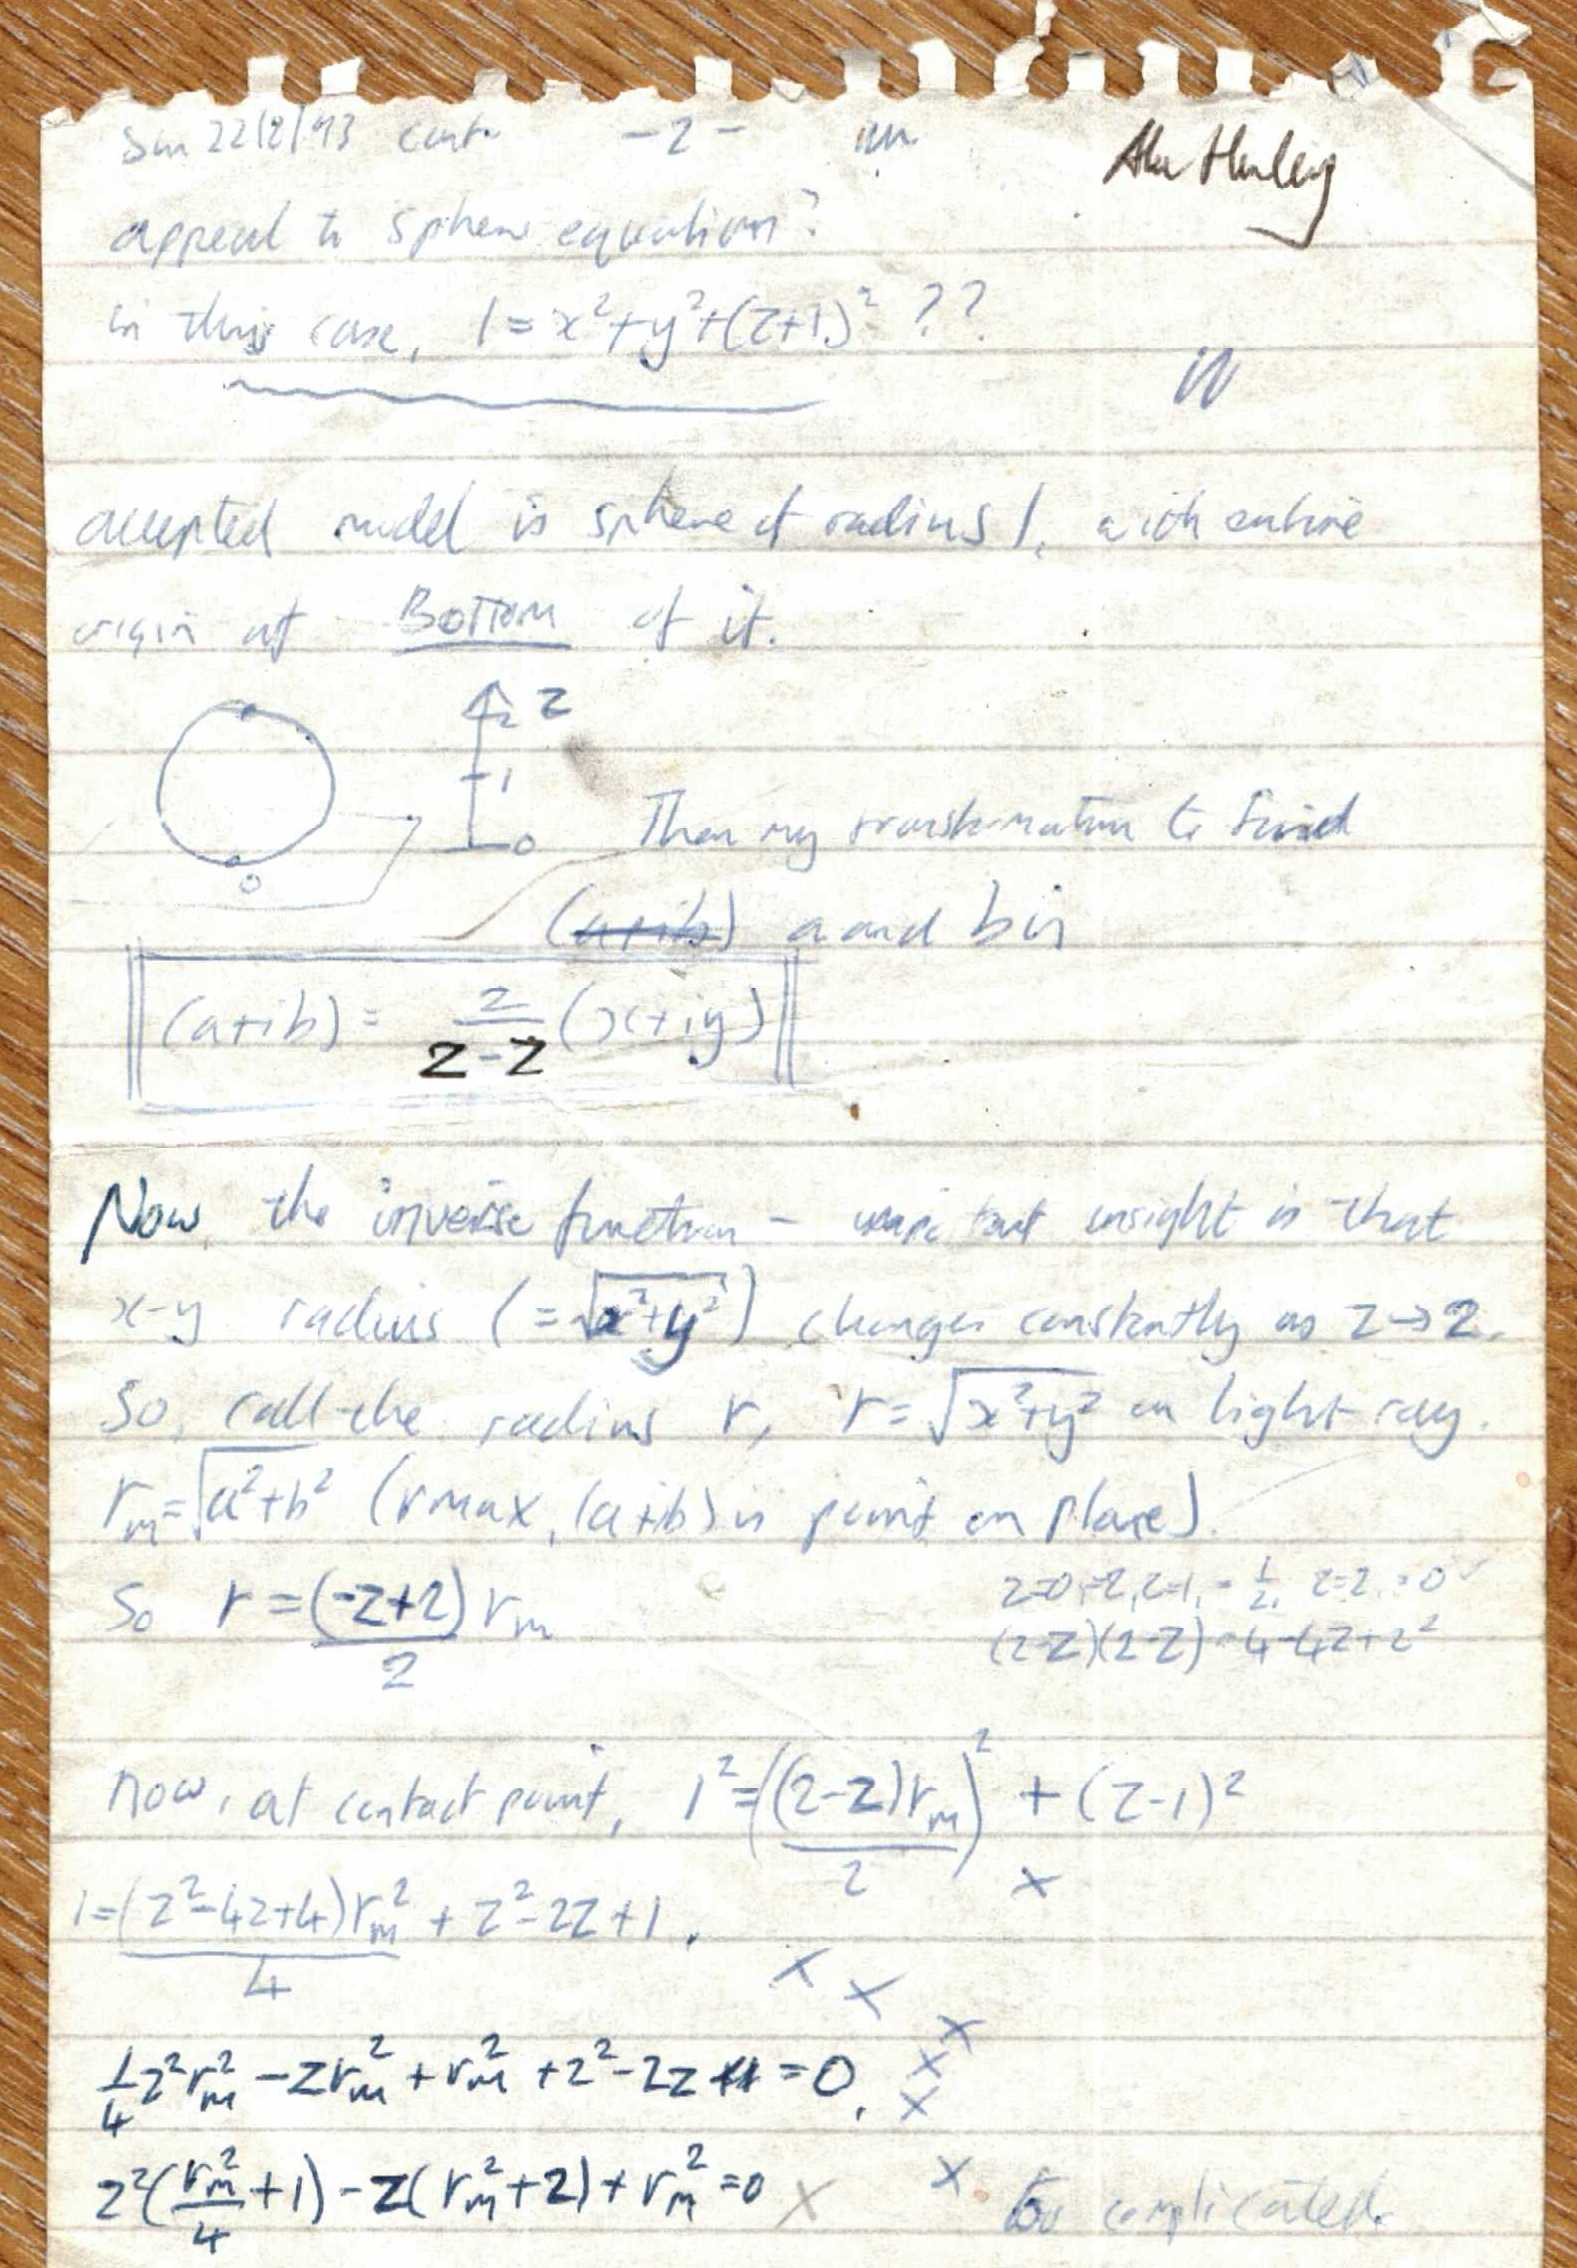 Sun 22/2/93 cont. -2-
appeal to sphere equation?
in this case, 1=x²+y²+(z+1)² ??
accepted model is sphere of radius 1, with entire
origin at BOTTOM of it.
z
2
1
0
0
Then my transformation to find
(a+ib) a and b is
(a+ib) = 2/(2-z) (x+iy)
Now, the inverse function - important insight is that
x-y radius (=√(x²+y²)) changes constantly as z→2.
So, call the radius r, r=√(x²+y²) on light ray.
rₘ=√(a²+b²) (rmax, (a+ib) is point on plane).
So r=(-z+2)/2 rₘ
(2-z)(2-z)=4-4z+z²
now, at contact point, 1²=((2-z)rₘ/2)² + (z-1)²
1=(z²-4z+4)rₘ²/4 + z²-2z+1.
1/4 z²rₘ² -zrₘ² +rₘ² +z²-2z =0.
z²(rₘ²/4 +1) -z(rₘ²+2)+rₘ²=0
too complicated.